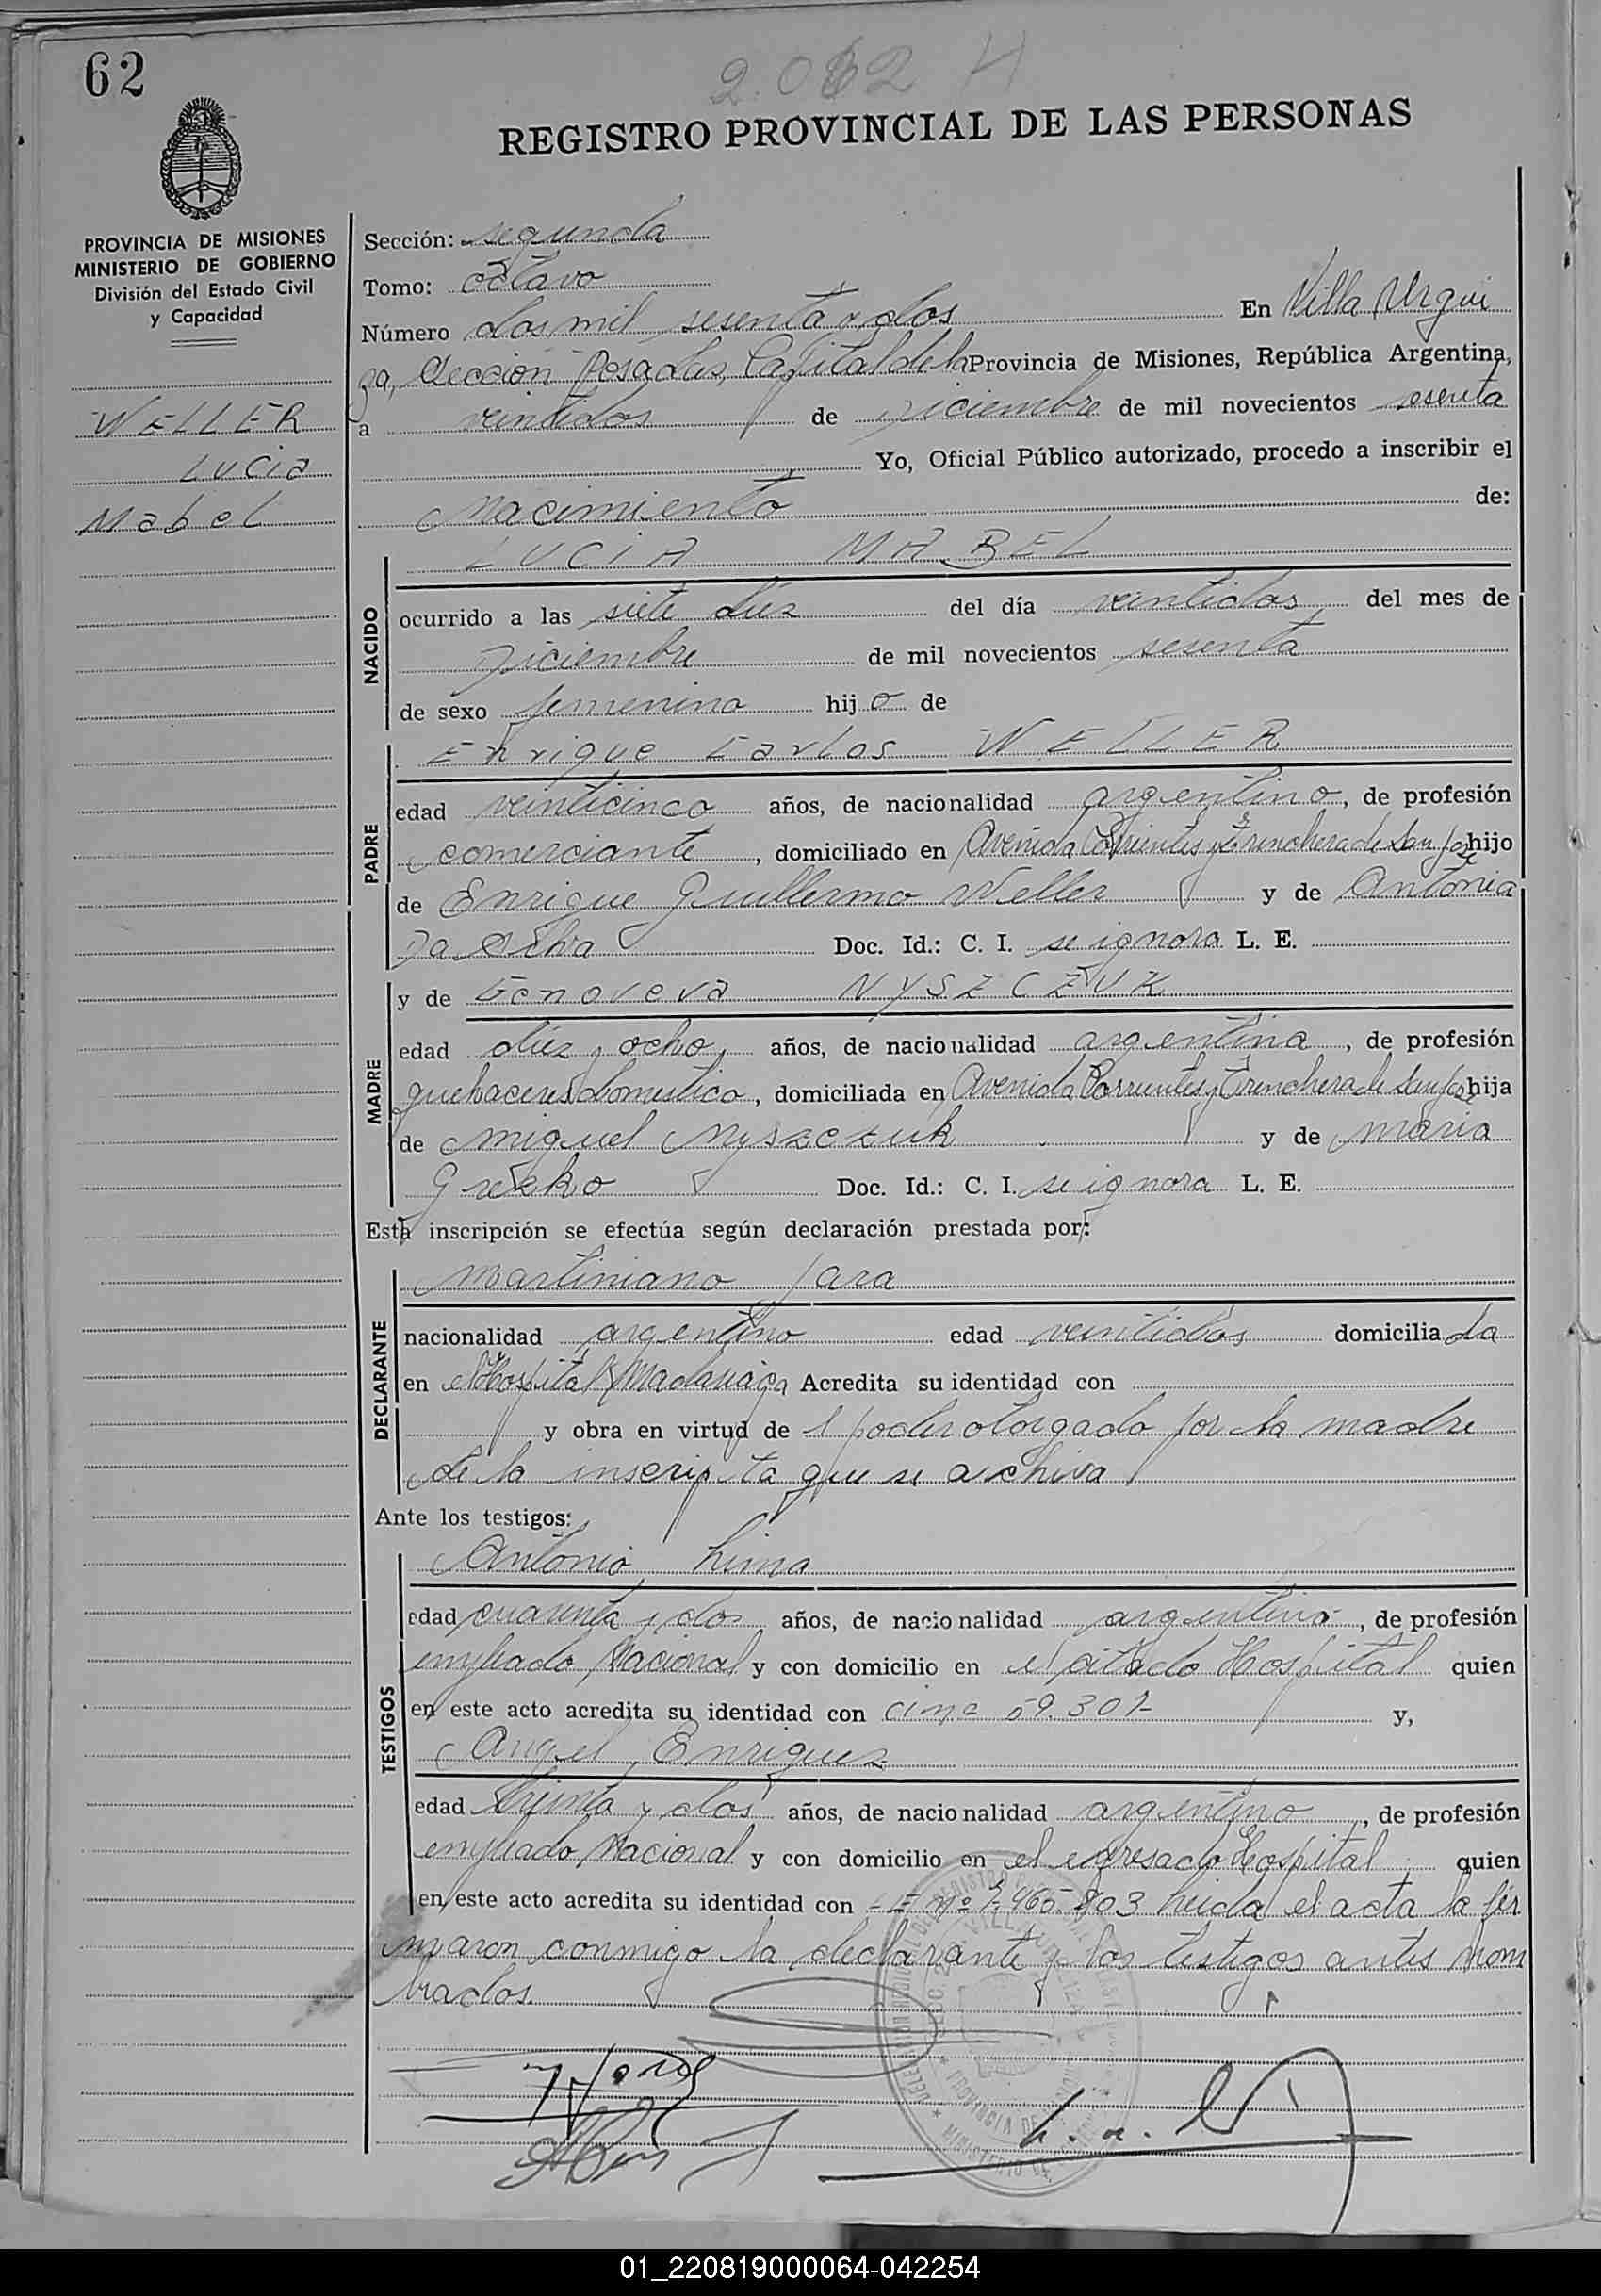 62
2.062 H
REGISTRO PROVINCIAL DE LAS PERSONAS
PROVINCIA DE MISIONES
MINISTERIO DE GOBIERNO
División del Estado Civil
y Capacidad
WELLER
Lucia
Mabel
Sección: segunda
Tomo: octavo
Número dos mil sesenta y dos En Villa Urqui
za, Sección Posadas, Capital de la Provincia de Misiones, República Argentina,
a veintidos de Diciembre de mil novecientos sesenta
Yo, Oficial Público autorizado, procedo a inscribir el
Nacimiento de:
LUCIA MABEL
NACIDO
ocurrido a las siete diez del día veintidos, del mes de
Diciembre de mil novecientos sesenta
de sexo femenino hijo de
PADRE
Enrique Carlos WELLER
edad veinticinco años, de nacionalidad argentino, de profesión
comerciante, domiciliado en Avenida Corrientes y Trinchera de San José hijo
de Enrique Guillermo Weller y de Antonia
Da Silva Doc. Id.: C. I. se ignora L. E.
MADRE
y de Genoveva NYSZCZUK
edad diez y ocho, años, de nacionalidad argentina, de profesión
quehaceres domestico, domiciliada en Avenida Corrientes y Trinchera de San José hija
de Miguel Nyszczuk y de Maria
Doc. Id.: C. I. se ignora L. E.
Esta inscripción se efectúa según declaración prestada por:
DECLARANTE
Martiniano Jara
nacionalidad argentino edad veintidos domicilia da
en el Hospital R Madariaga Acredita su identidad con
y obra en virtud de l poder otorgado por la madre
de la inscripta que se archiva
Ante los testigos:
TESTIGOS
Antonio Lima
edad cuarenta y dos años, de nacionalidad argentino, de profesión
empleado Nacional y con domicilio en el citado Hospital quien
en este acto acredita su identidad con 59.307 y,
Angel Enriquez
edad treinta y dos años, de nacionalidad argentino, de profesión
empleado Nacional y con domicilio en el expresado Hospital, quien
en este acto acredita su identidad con LE Nº 7.465.803 Leida el acta la fir
maron conmigo la declarante y los testigos antes nom
brados.
01_220819000064-042254